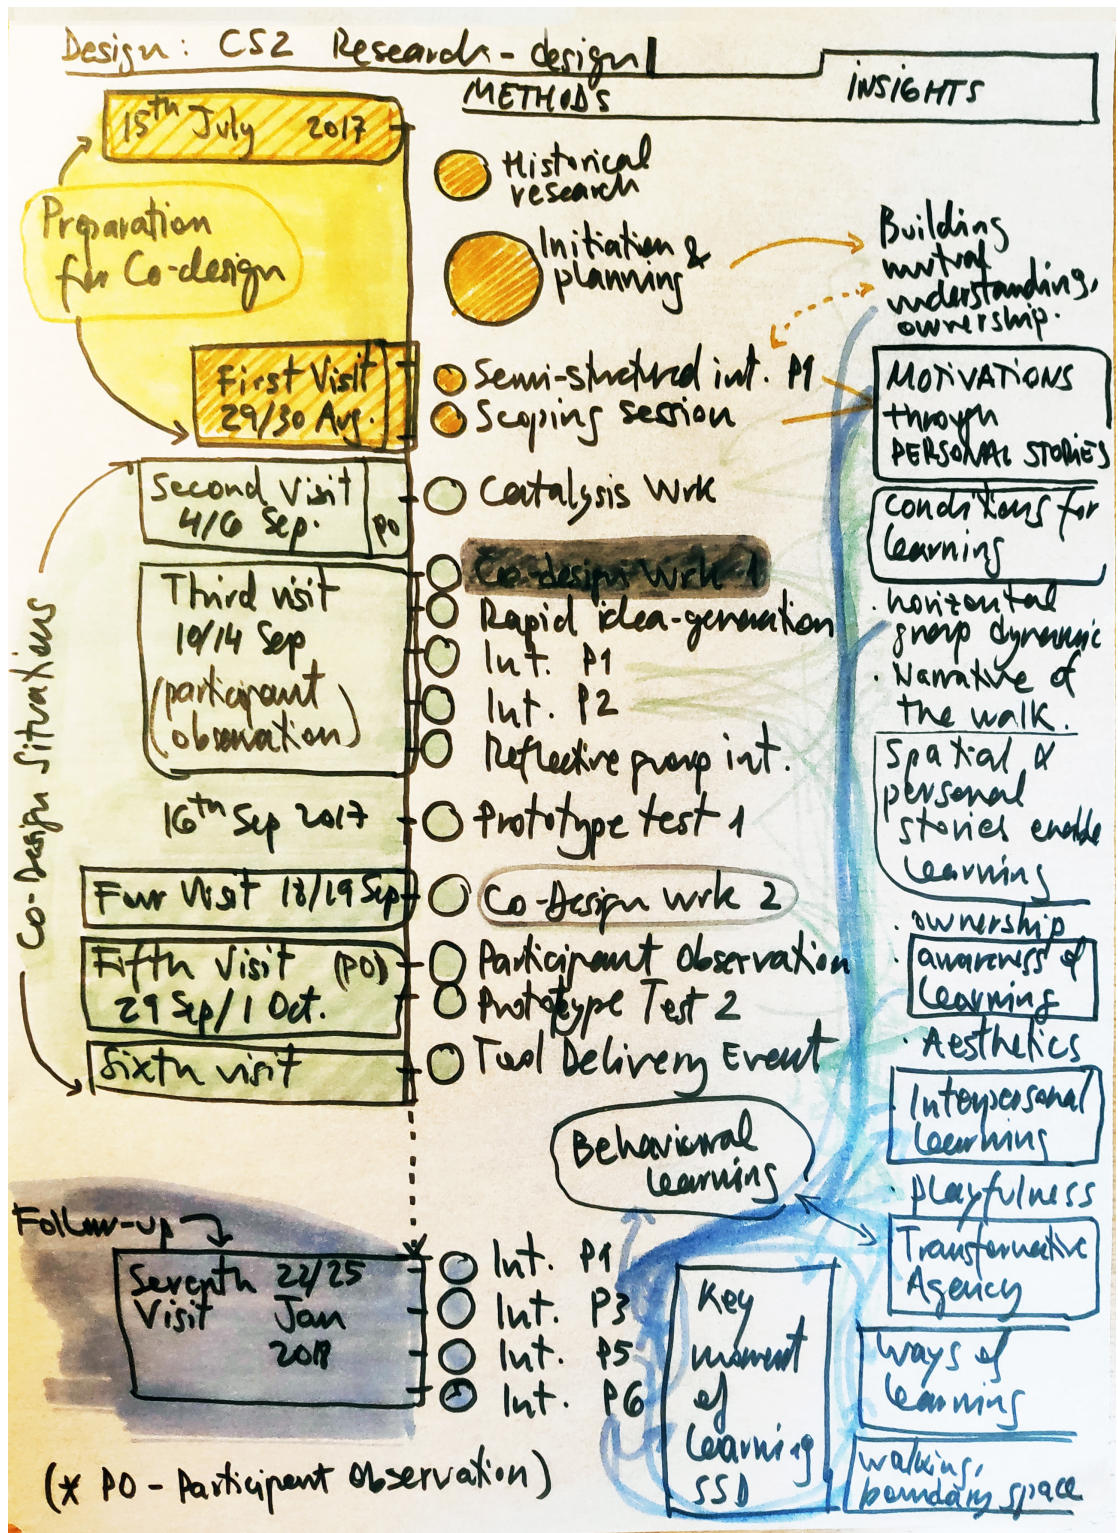 Design: CS2 Research-design
METHODS
INSIGHTS
15th July 2017
Preparation
for Co-design
First Visit
29/30 Aug.
Second Visit
4/6 Sep.
PO
Third visit
10/14 Sep
(participant
observation)
16th Sep 2017
Four Visit 18/19 Sep
Fifth Visit (PO)
29 Sep/1 Oct.
Sixth visit
Co-Design Situations
Follow-up
Seventh 22/25
Visit Jan
2018
Historical
research
Initiation &
planning
Semi-structured int. P1
Scoping session
Catalysis Wrk
Co-design Wrk 1
Rapid idea-generation
Int. P1
Int. P2
Reflective group int.
Prototype test 1
Co-Design wrk 2
Participant Observation
Prototype Test 2
Tool Delivery Event
Behavioural
learning
Int. P1
Int. P3
Int. P5
Int. P6
Key
moment
of
learning
SSD
Building
mutual
understanding,
ownership.
MOTIVATIONS
through
PERSONAL STORIES
Conditions for
learning
· horizontal
group dynamic
· Narrative of
the walk.
Spatial &
personal
stories enable
learning
· ownership
· awareness of
learning
· Aesthetics
Interpersonal
learning
· playfulness
Transformative
Agency
ways of
learning
walking,
boundary space
(* PO - Participant Observation)